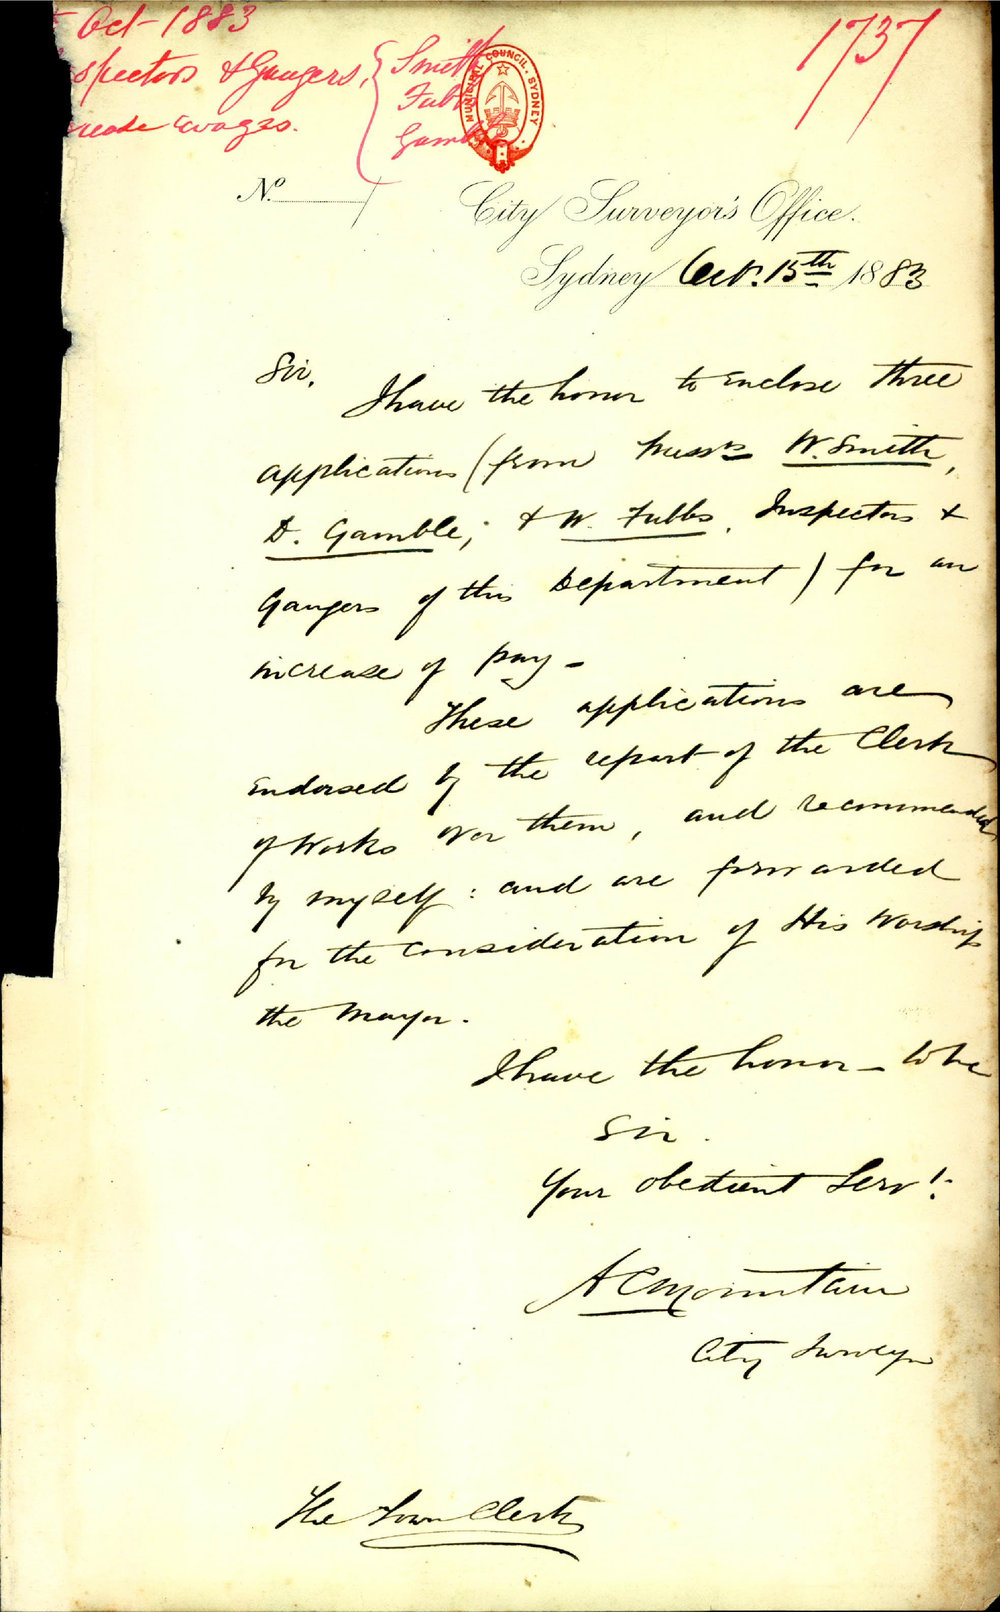 Oct - 1883
spectors & Gangers, { Smith
Tubbs
Gamble
crease wages.
1737
MUNICIPAL COUNCIL, SYDNEY
No.
City Surveyor's Office.
Sydney Oct. 15th 1883
Sir,
I have the honor to enclose three
applications (from Messrs W. Smith,
D. Gamble; & W. Tubbs, Inspectors &
Gangers of this Department) for an
increase of pay -
These applications are
endorsed by the report of the Clerk
of Works over them, and recommended
by myself: and are forwarded
for the consideration of His Worship
the Mayor.
I have the honor - to be
Sir.
Your obedient Servt.
A C Mountain
City Surveyor
The Town Clerk